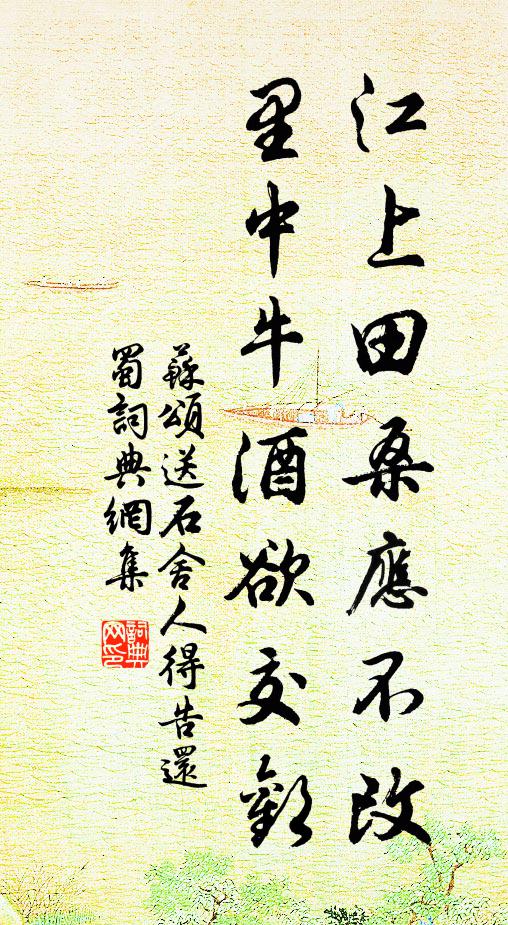 江上田桑應不改
里中牛酒欲交歡
蘇頌送石舍人得告還
蜀詞典網集
詞典
網印